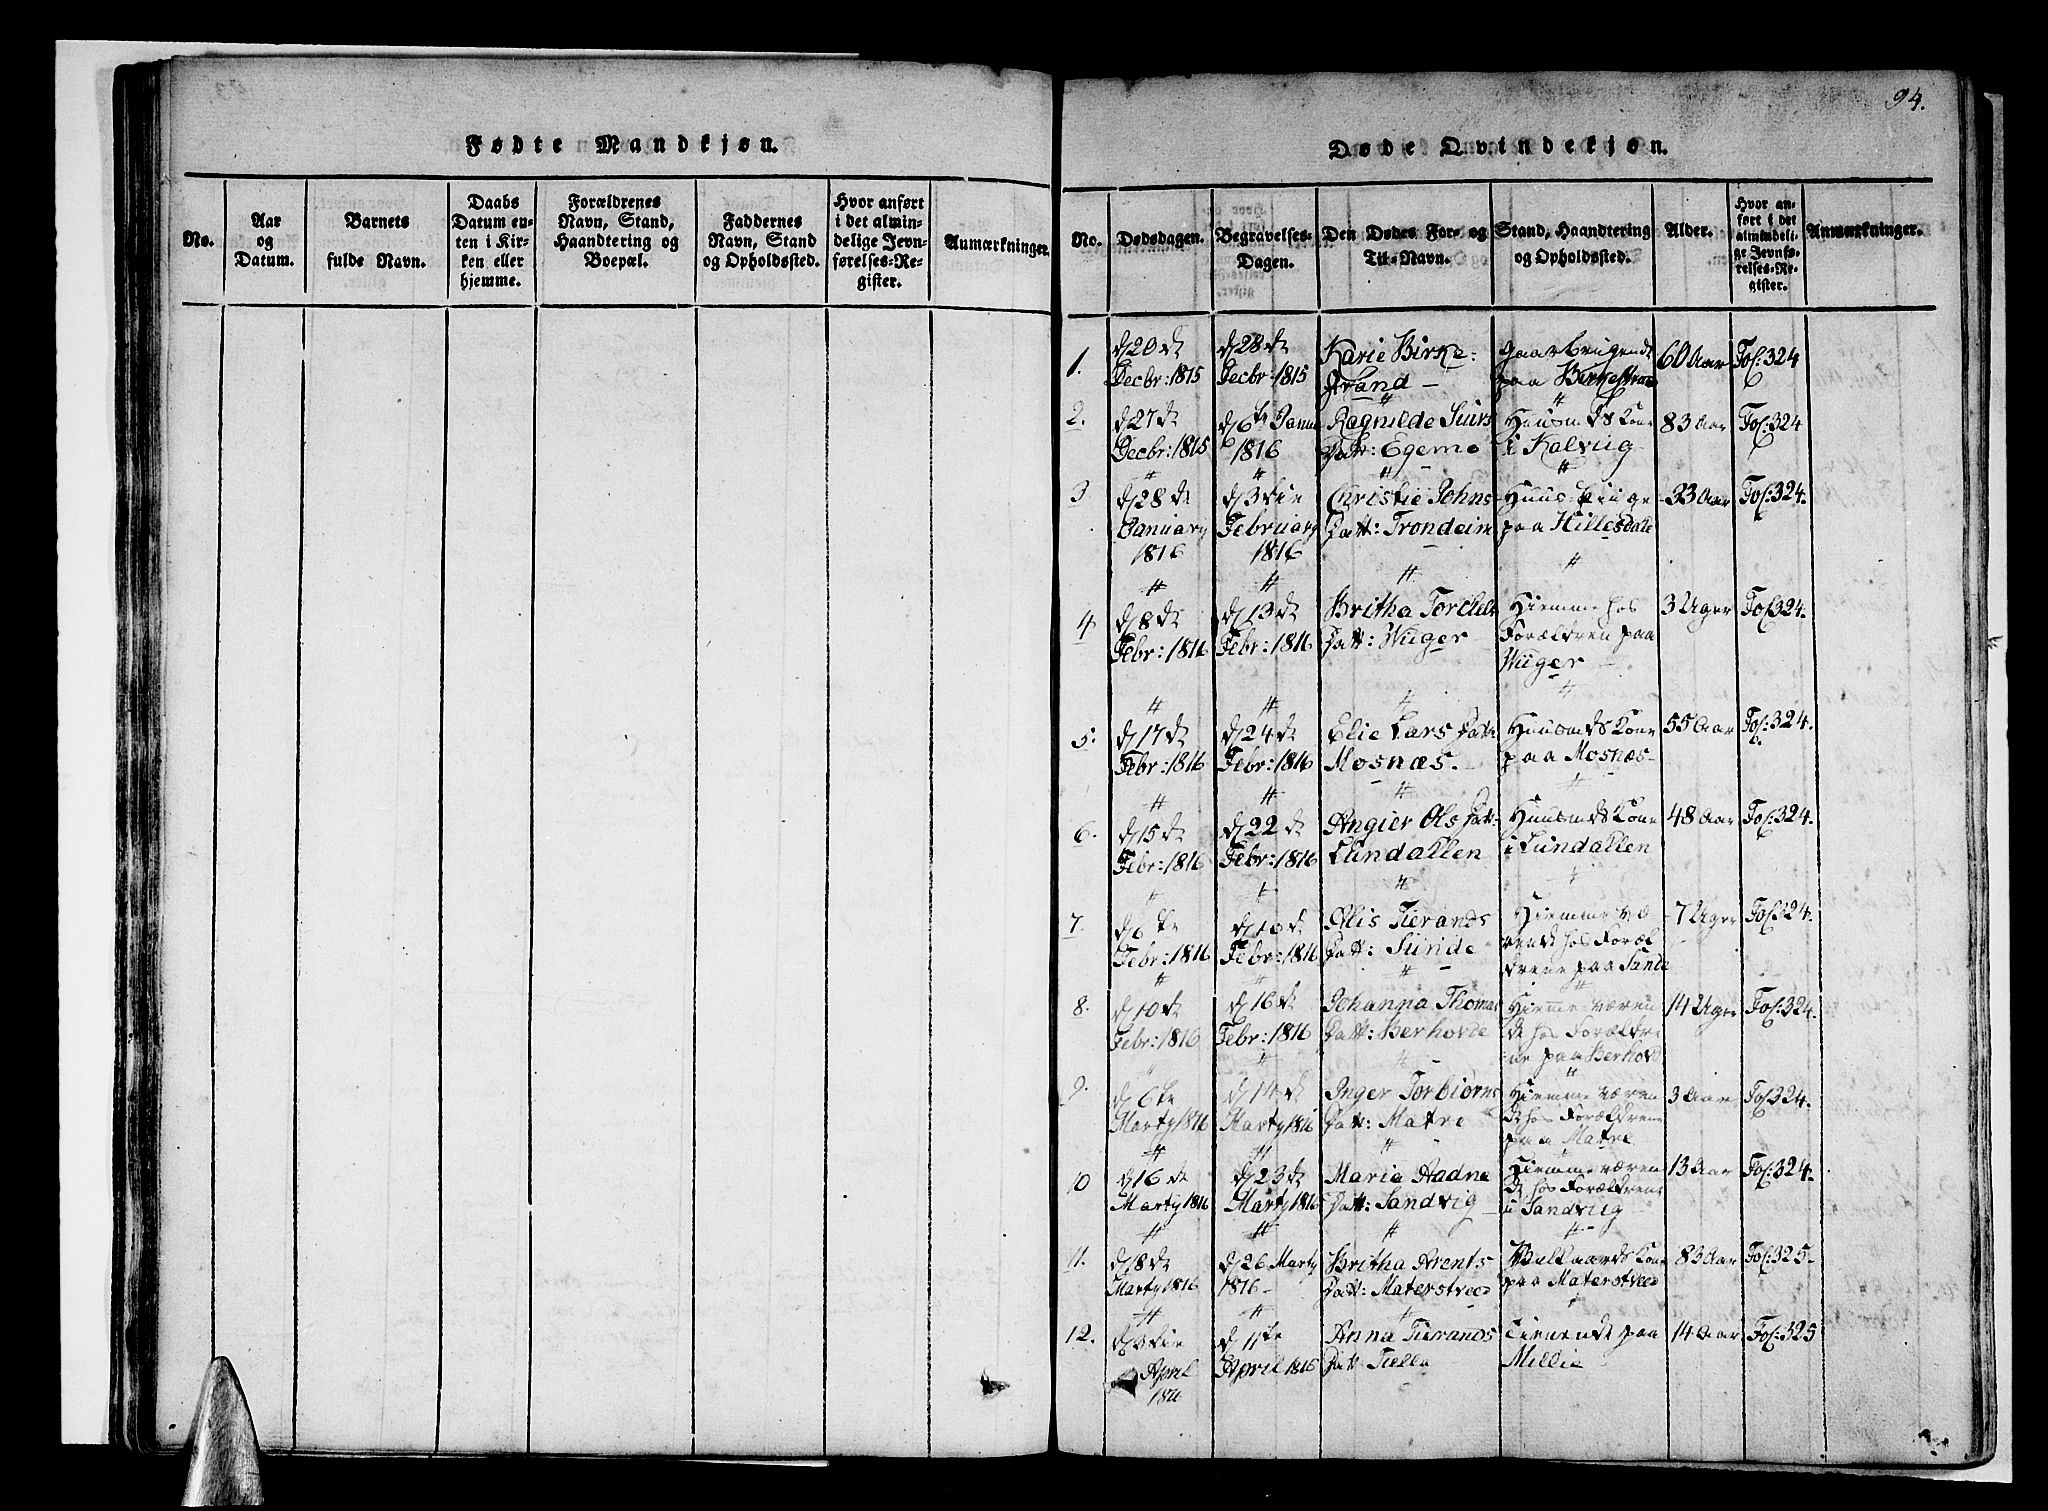 Fødte Mandkjøn.
No.
Aar
og
Datum.
Barnets
fulde Navn.
Daabs
Datum en-
ten i Kir-
ken eller
hjemme.
Forældrenes
Navn, Stand,
Haandtering og
Boepæl.
Faddernes
Navn, Stand
og Opholdssted.
Hvor anført
i det almin-
delige Jevn-
førelses-Re-
gister.
Anmærkninger.
94.
Døde Qvindekjøn.
No.
Dødsdagen.
Begravelses-
Dagen.
Den Dødes For- og
Til-Navn.
Stand, Haandtering
og Opholdssted.
Alder.
Hvor an-
ført i det
almindeli-
ge Jevnfø-
relses-Re-
gister.
Anmærkninger.
1.
d/20de
Decbr: 1815
d/28de
Decbr: 1815
Karie Birke-
strand
Gaardbrugende
paa Birkestrand
60 Aar
Fol: 324
2.
d/27de
Decbr: 1815
d/6te Janu
1816
Ragnilde Siurs
Datt: Egemo
Huusmds Kone
i Kalviig
83 Aar
Fol: 324
3
d/28de
January
1816
d/3die
February
1816
Christie Johns
Datt: Trondeim
Huus-Piige
paa Hillesdale
33 Aar
Fol: 324.
4
d/8de
Febr: 1816
d/13de
Febr: 1816
Britha Torckels
Datt: Wiiger
Hiemme hos
Forældren paa
Wiiger
3 Uger
Fol: 324.
5.
d/17de
Febr: 1816
d/24de
Febr: 1816
Elie Lars Datt:
Mosnæs.
Huusmds Kone
paa Mosnæs
55 Aar
Fol: 324.
6.
d/15de
Febr: 1816
d/22de
Febr: 1816
Angier Ols Datt:
Lundallen
Huusmds Kone
i Lundallen
48 Aar
Fol: 324.
7.
d/6te
Febr: 1816
d/16de
Febr: 1816
Alis Tierands
Datt: Sunde
Hiemme væ
rende hos Foræl
drene paa Sunde
7 Uger
Fol: 324.
8.
d/10de
Febr: 1816
d/16de
Febr: 1816
Johanna Thomas
Datt: Berhovde
Hiemme væren
de hos Forældre
ne paa Berhovd
14 Uger
Fol: 324.
9.
d/6te
Marty 1816
d/14de
Marty 1816
Inger Torbiørns
Datt: Matre
Hiemme væren
de hos Forældrene
paa Matre
3 Aar
Fol: 324.
10
d/16de
Marty 1816
d/23de
Marty 1816
Maria Aadne
Datt: Sandvig
Hiemme væren
de hos Forældrene
i Sandviig
13 Aar
Fol: 324.
11.
d/18de
Marty 1816
d/26 Marty
1816
Britha Arents
Datt: Materstveed
Kone
paa Materstveed
83 Aar
Fol: 325.
12.
d/3die
April
d/11te
April 1816
Anna Tierands
Datt: Tielle
Tienende paa
Millie
14 Aar
Fol: 325